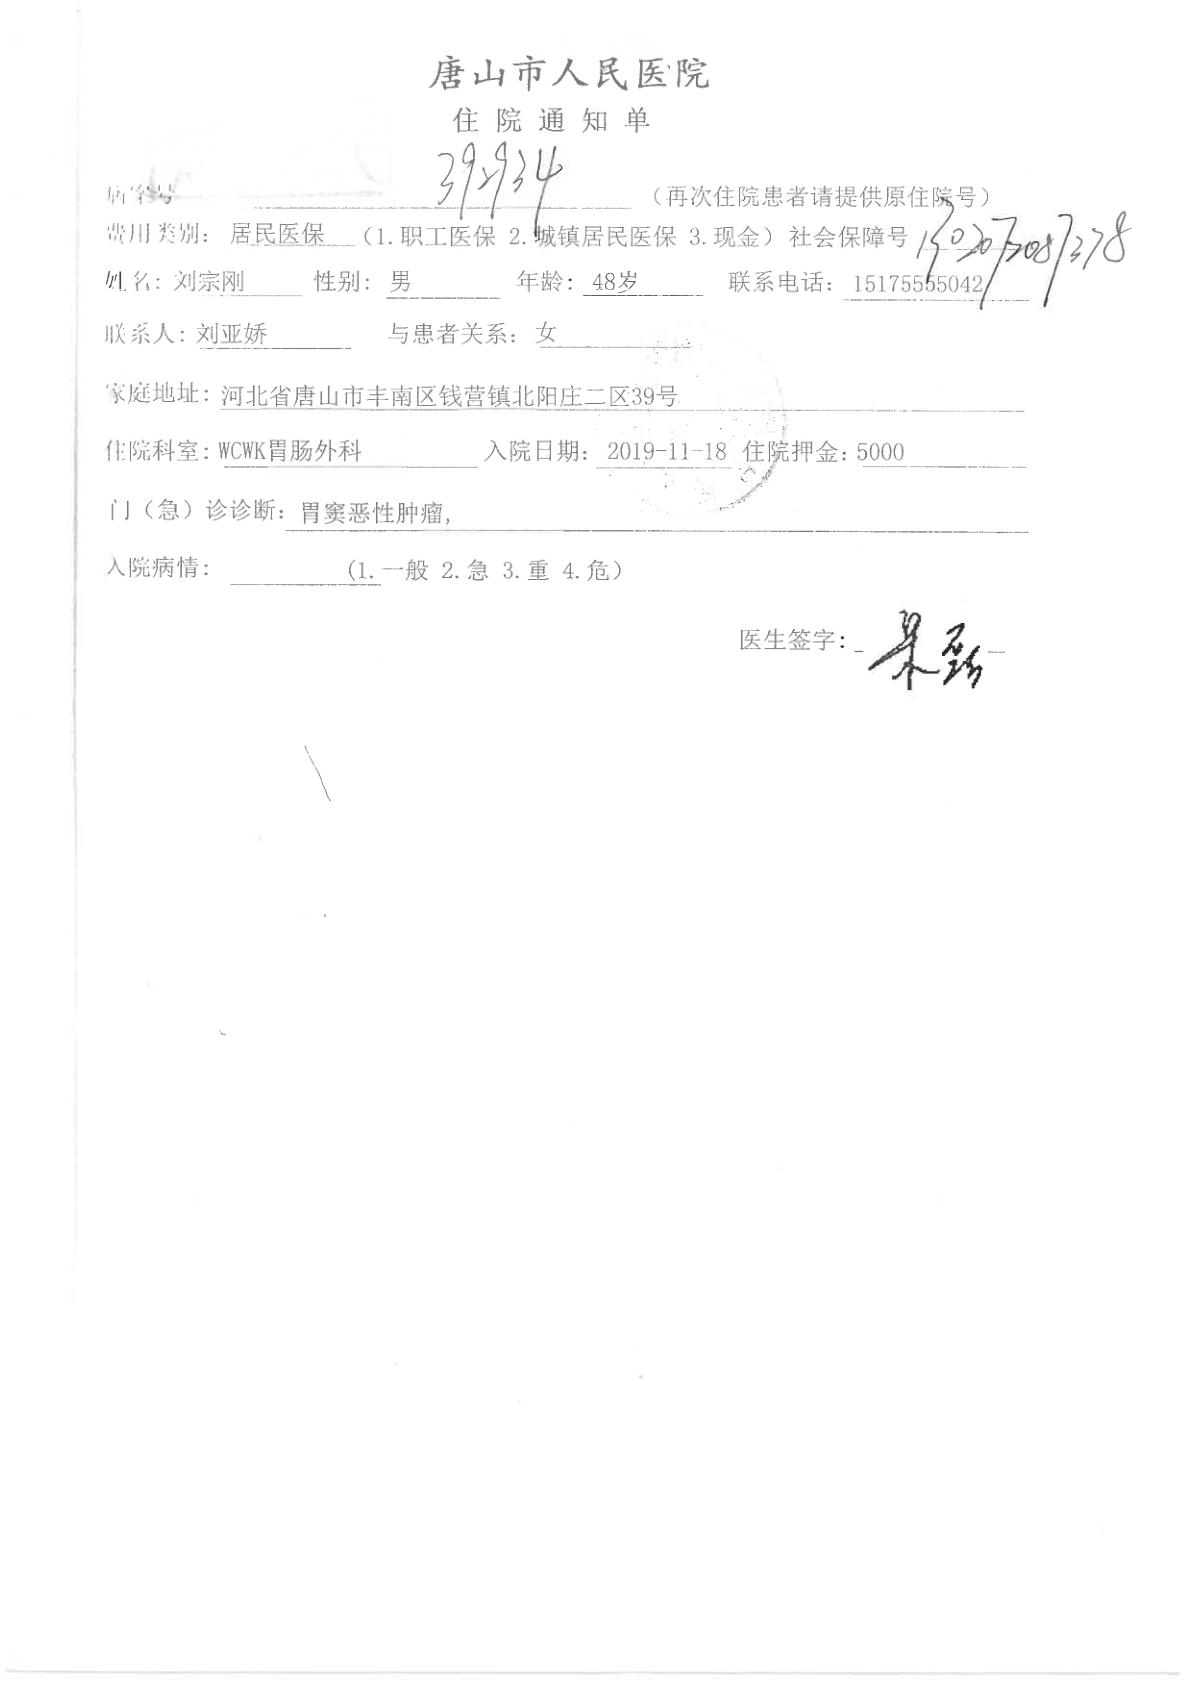 唐山市人民医院
住院通知单
病案号 392934 （再次住院患者请提供原住院号）
费用类别：居民医保 （1.职工医保 2.城镇居民医保 3.现金）社会保障号
姓名：刘宗刚 性别：男 年龄：48岁 联系电话：15175555042
联系人：刘亚娇 与患者关系：女
家庭地址：河北省唐山市丰南区钱营镇北阳庄二区39号
住院科室：WCWK胃肠外科 入院日期：2019-11-18 住院押金：5000
门（急）诊诊断：胃窦恶性肿瘤,
入院病情： (1.一般 2.急 3.重 4.危）
医生签字：